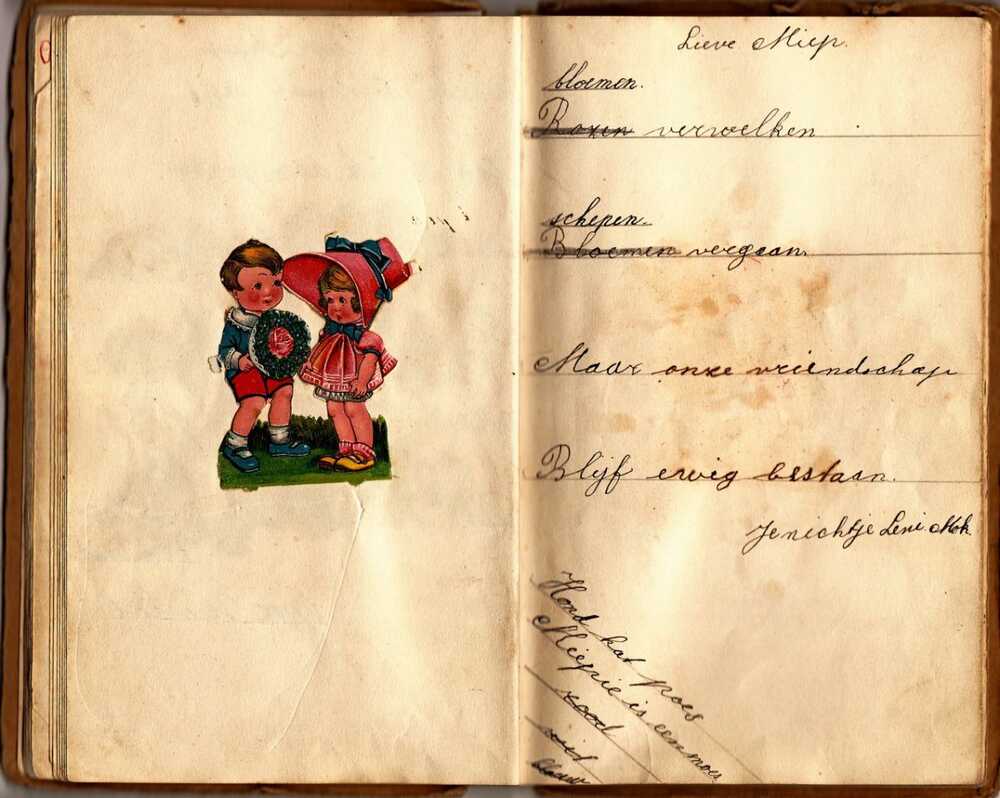 Lieve Miep.
bloemen.
Rozen verwelken
schepen.
Bloemen vergaan.
Maar onze vriendschap
Blijf eeuwig bestaan.
Je nichtje Leni Mok.
Hond kat poes
Miepie is een moes
rood
wit
blauw